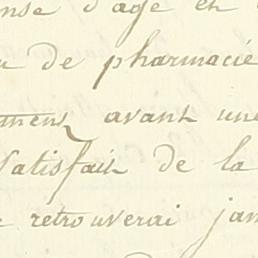 d'age et
de pharmacie
avant une
satisfait de la
retrouverai jam